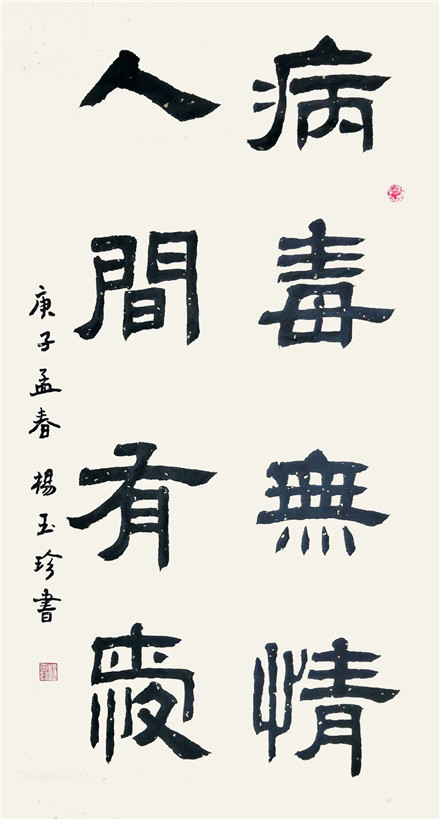 病毒無情
人間有愛
庚子孟春 楊玉珍書